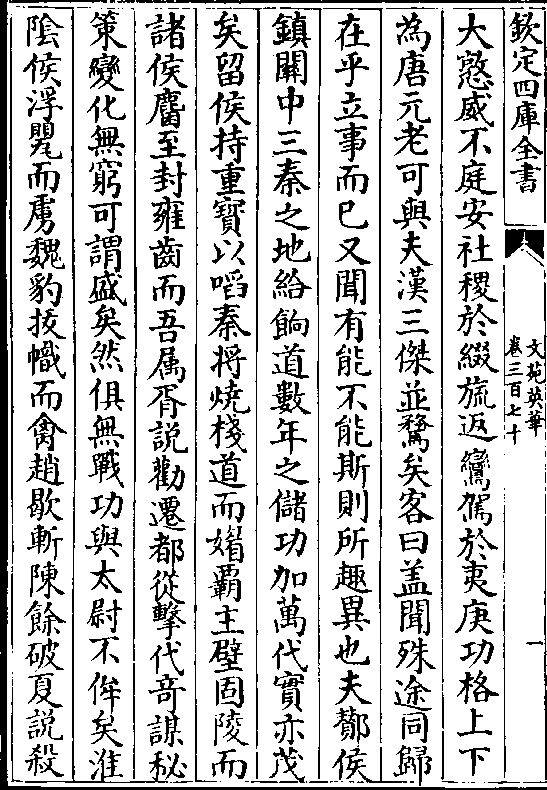 欽定四庫全書
文苑英華
卷三百七十
一
大憝威不庭安社稷於綴旒返鸞駕於夷庚功格上下
為唐元老可與夫漢三傑並騖矣客曰盖聞殊途同歸
在乎立事而已又聞有能不能斯則所趣異也夫酇侯
鎮關中三秦之地給餉道數年之儲功加萬代實亦茂
矣留侯持重寳以啗秦將燒棧道而媚覇主壁固陵而
諸侯麕至封雍齒而吾属胥說勸遷都從擊代竒謀秘
策變化無窮可謂盛矣然俱無戰功與太尉不侔矣淮
陰侯浮甖而虜魏豹㧞幟而禽趙歇斬陳餘破夏說殺